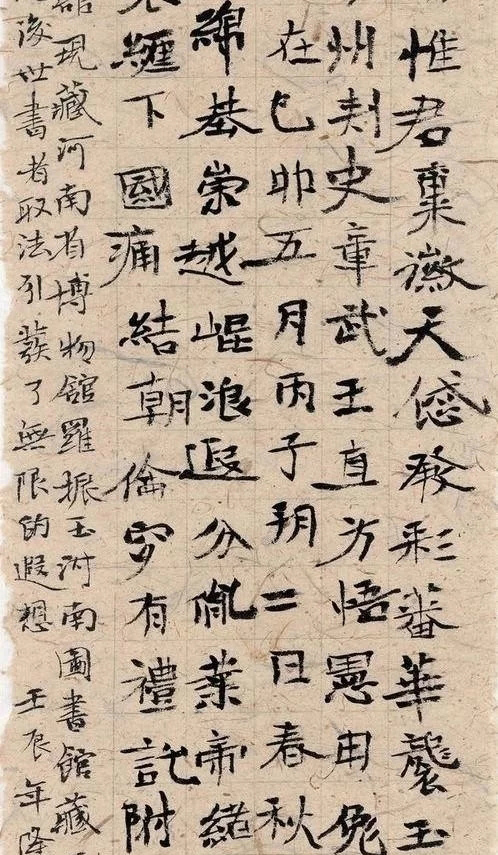 惟君稟徽天感發彩蕃華襲玉
州刾史章武王直方悟愚用
在己卯五月丙子朔二日春秋
綿基崇越崐浪遐分胤葉帝緒
纏下國痛結朝倫窆有禮託附
館現藏河南省博物館羅振玉河南圖書館藏
後世書者取法引發了無限的遐想 壬辰年降